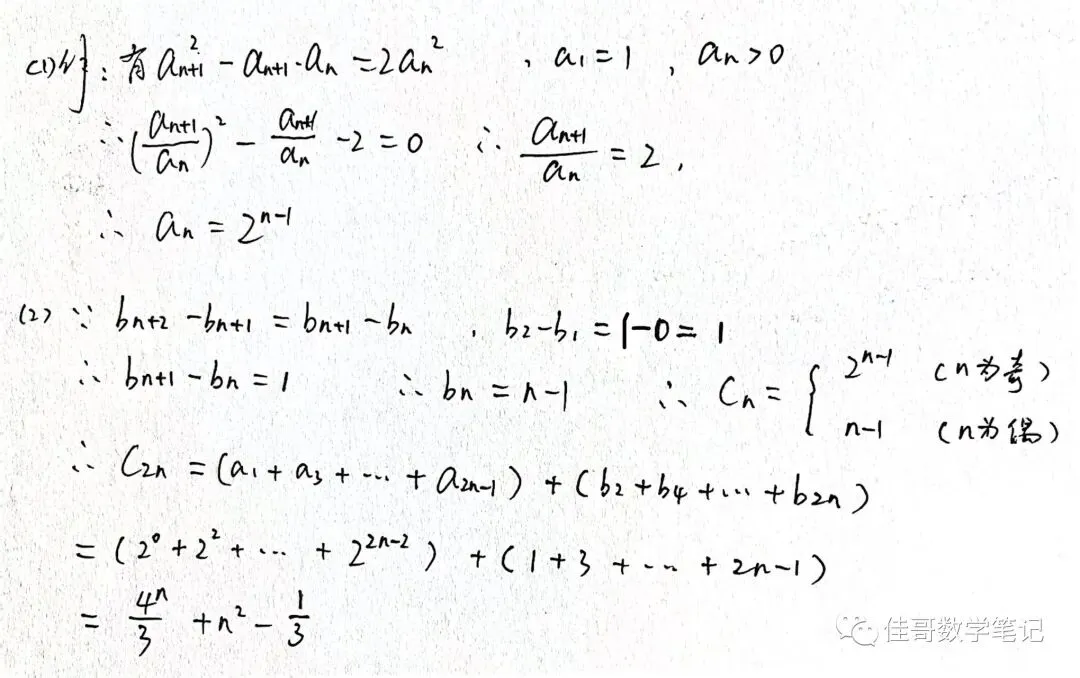 (1)解：有 aₙ₊₁² - aₙ₊₁·aₙ = 2aₙ² , a₁ = 1 , aₙ > 0
∴ (aₙ₊₁/aₙ)² - aₙ₊₁/aₙ - 2 = 0 ∴ aₙ₊₁/aₙ = 2 ,
∴ aₙ = 2ⁿ⁻¹
(2) ∵ bₙ₊₂ - bₙ₊₁ = bₙ₊₁ - bₙ , b₂ - b₁ = 1 - 0 = 1
∴ bₙ₊₁ - bₙ = 1 ∴ bₙ = n-1 ∴ Cₙ = { 2ⁿ⁻¹ (n为奇)
n-1 (n为偶)
∴ C₂ₙ = (a₁ + a₃ + ··· + a₂ₙ₋₁) + (b₂ + b₄ + ··· + b₂ₙ)
= (2⁰ + 2² + ··· + 2²ⁿ⁻²) + (1 + 3 + ··· + 2n-1)
= 4ⁿ/3 + n² - 1/3
佳哥数学笔记